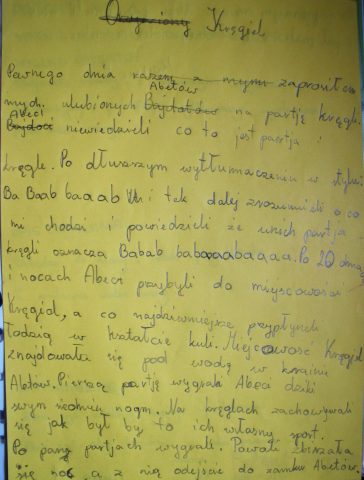 Oczysziony Kręgiel
Pewnego dnia razem z mymi zaprosiłam
Abetów
mych ulubionych Bajdotów na partję kręgli.
Abeci
Bajdoci niewiedzieli co to jest partja
kręgle. Po dłuszszym wytłumaczeniu w stylu
Ba Baab baaab i tak dalej zrozumieli o co
mi chodzi i powiedzieli że u nich partja
kręgli oznacza Babab babaaabaaaa. Po 20 dniach
i nocach Abeci przybyli do miejscowości
Kręgiel, a co najdziwniejsze przypłyneli
łodzią w kształcie kuli. Miejscowość Kręgiel
znajdowała się pod wodą w krainie
Abetów. Pierszą partję wygrali Abeci dziki
swym nogm. Na kręglach zachowywali
się jak był by to ich własny sport.
Po parę partjach wygrali. Powoli zbirzała
się noc, a z nią odejście do zamku Abetów.